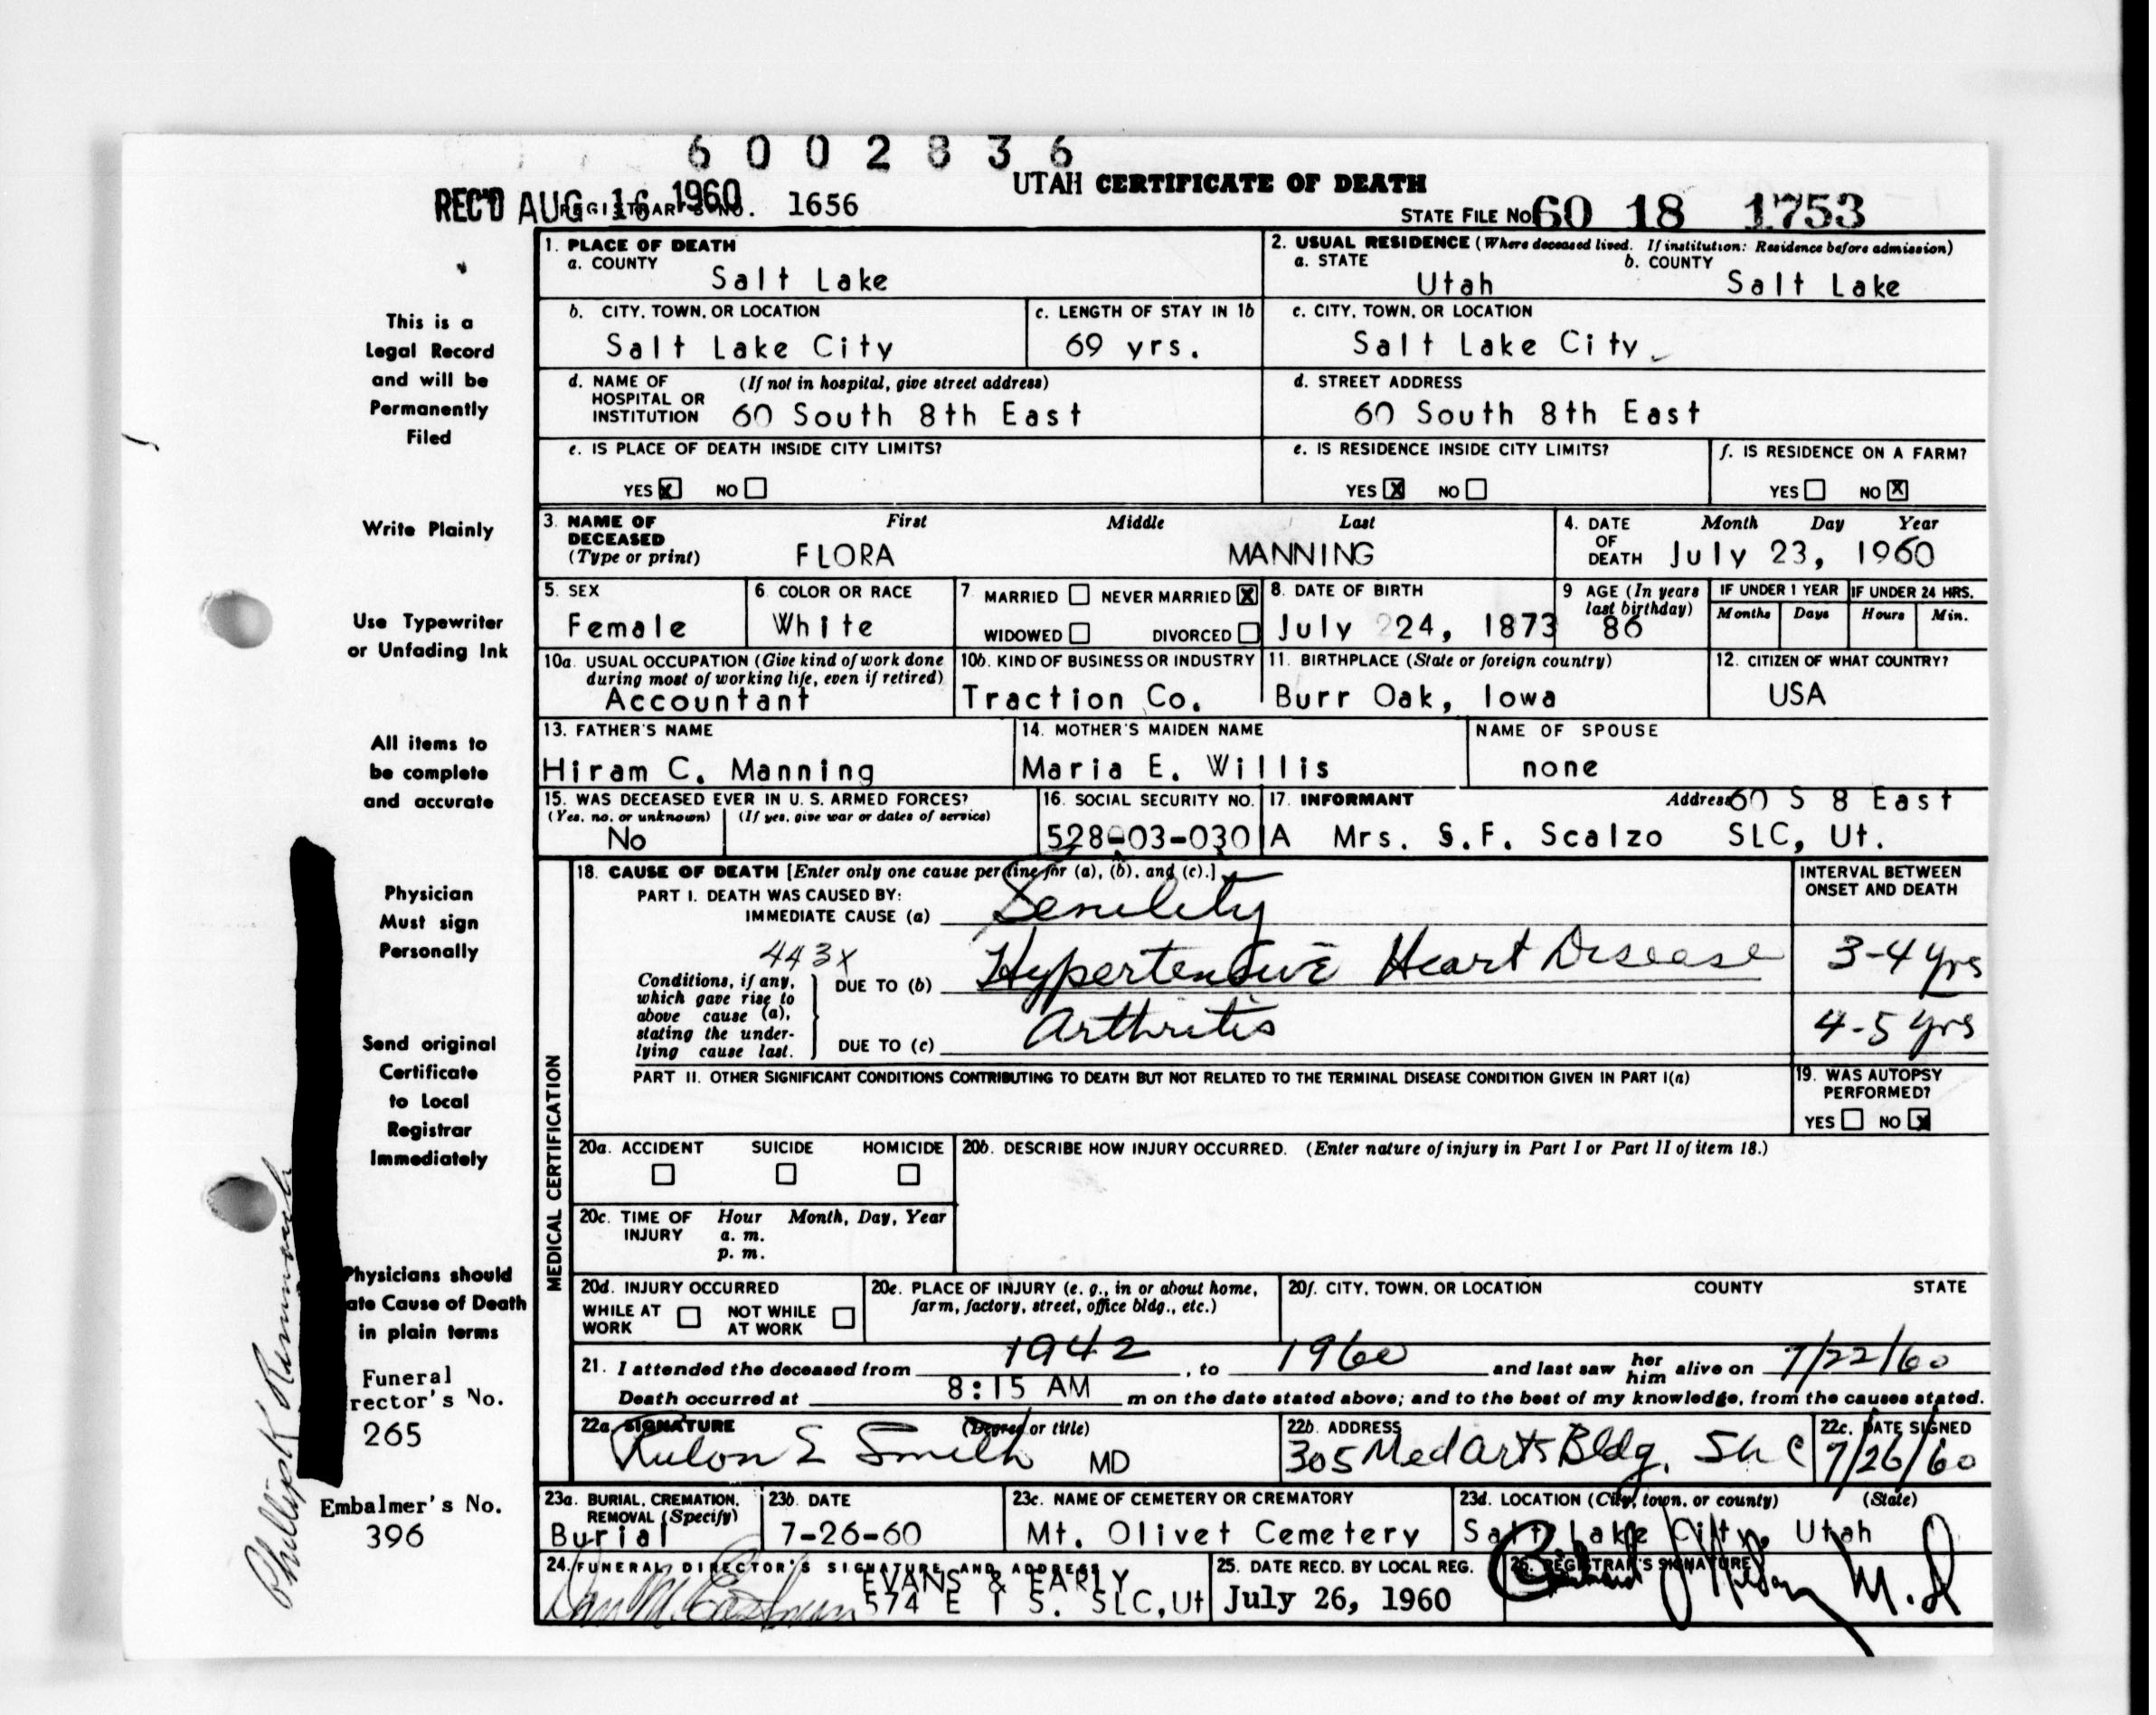 6002836
UTAH CERTIFICATE OF DEATH
REC'D AUG 16 1960 REGISTRAR'S NO. 1656
STATE FILE NO. 60 18 1753
1. PLACE OF DEATH
a. COUNTY Salt Lake
2. USUAL RESIDENCE (Where deceased lived. If institution: Residence before admission)
a. STATE Utah b. COUNTY Salt Lake
b. CITY, TOWN, OR LOCATION Salt Lake City
c. LENGTH OF STAY IN 1b 69 yrs.
c. CITY, TOWN, OR LOCATION Salt Lake City
d. NAME OF HOSPITAL OR INSTITUTION (If not in hospital, give street address) 60 South 8th East
d. STREET ADDRESS 60 South 8th East
e. IS PLACE OF DEATH INSIDE CITY LIMITS? YES X NO
e. IS RESIDENCE INSIDE CITY LIMITS? YES X NO
f. IS RESIDENCE ON A FARM? YES NO X
3. NAME OF DECEASED (Type or print) First Middle Last
FLORA MANNING
4. DATE OF DEATH Month Day Year
July 23, 1960
5. SEX Female
6. COLOR OR RACE White
7. MARRIED NEVER MARRIED X
WIDOWED DIVORCED
8. DATE OF BIRTH July 24, 1873
9 AGE (In years last birthday) 86
IF UNDER 1 YEAR Months Days
IF UNDER 24 HRS. Hours Min.
10a. USUAL OCCUPATION (Give kind of work done during most of working life, even if retired) Accountant
10b. KIND OF BUSINESS OR INDUSTRY Traction Co.
11. BIRTHPLACE (State or foreign country) Burr Oak, Iowa
12. CITIZEN OF WHAT COUNTRY? USA
13. FATHER'S NAME Hiram C. Manning
14. MOTHER'S MAIDEN NAME Maria E. Willis
NAME OF SPOUSE none
15. WAS DECEASED EVER IN U. S. ARMED FORCES?
(Yes, no, or unknown) (If yes, give war or dates of service)
No
16. SOCIAL SECURITY NO. 528-03-030 A
17. INFORMANT Mrs. S.F. Scalzo Address 60 S 8 East
SLC, Ut.
MEDICAL CERTIFICATION
18. CAUSE OF DEATH [Enter only one cause per line for (a), (b), and (c).]
INTERVAL BETWEEN ONSET AND DEATH
PART I. DEATH WAS CAUSED BY:
IMMEDIATE CAUSE (a) Senility
443X
Conditions, if any, which gave rise to above cause (a), stating the underlying cause last.
DUE TO (b) Hypertensive Heart Disease 3-4 yrs
DUE TO (c) Arthritis 4-5 yrs
PART II. OTHER SIGNIFICANT CONDITIONS CONTRIBUTING TO DEATH BUT NOT RELATED TO THE TERMINAL DISEASE CONDITION GIVEN IN PART I(a)
19. WAS AUTOPSY PERFORMED?
YES NO X
20a. ACCIDENT SUICIDE HOMICIDE
20b. DESCRIBE HOW INJURY OCCURRED. (Enter nature of injury in Part I or Part II of item 18.)
20c. TIME OF INJURY Hour Month, Day, Year
a. m.
p. m.
20d. INJURY OCCURRED
WHILE AT WORK NOT WHILE AT WORK
20e. PLACE OF INJURY (e. g., in or about home, farm, factory, street, office bldg., etc.)
20f. CITY, TOWN, OR LOCATION COUNTY STATE
21. I attended the deceased from 1942, to 1960 and last saw her him alive on 7/22/60
Death occurred at 8:15 AM m on the date stated above; and to the best of my knowledge, from the causes stated.
22a. SIGNATURE (Degree or title)
Rulon E Smith MD
22b. ADDRESS
305 Med Arts Bldg. SLC
22c. DATE SIGNED
7/26/60
23a. BURIAL, CREMATION, REMOVAL (Specify) Burial
23b. DATE 7-26-60
23c. NAME OF CEMETERY OR CREMATORY Mt. Olivet Cemetery
23d. LOCATION (City, town, or county) (State)
Salt Lake City, Utah
24. FUNERAL DIRECTOR'S SIGNATURE AND ADDRESS
EVANS & EARLY
574 E 1 S. SLC, Ut
25. DATE RECD. BY LOCAL REG.
July 26, 1960
26. REGISTRAR'S SIGNATURE
M.D
This is a
Legal Record
and will be
Permanently
Filed
Write Plainly
Use Typewriter
or Unfading Ink
All items to
be complete
and accurate
Physician
Must sign
Personally
Send original
Certificate
to Local
Registrar
Immediately
Physicians should
ate Cause of Death
in plain terms
Funeral
rector's No.
265
Embalmer's No.
396